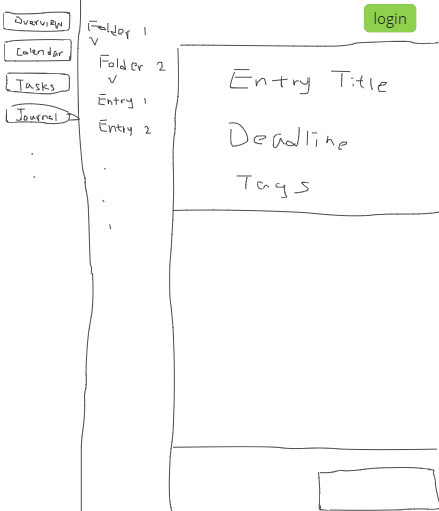 login
Overview
Calendar
Tasks
Journal
Folder 1
Folder 2
Entry 1
Entry 2
Entry Title
Deadline
Tags